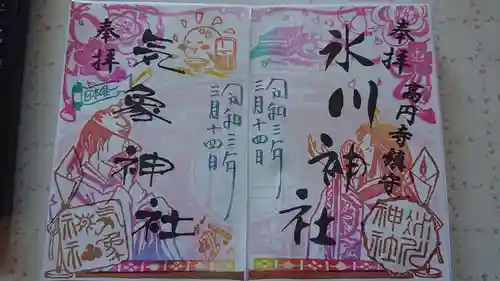 奉拝
高円寺鎮守
氷川神社
令和三年
三月十四日
氷川
神社
奉拝
日本唯一
気象神社
令和三年
三月十四日
気象
神社